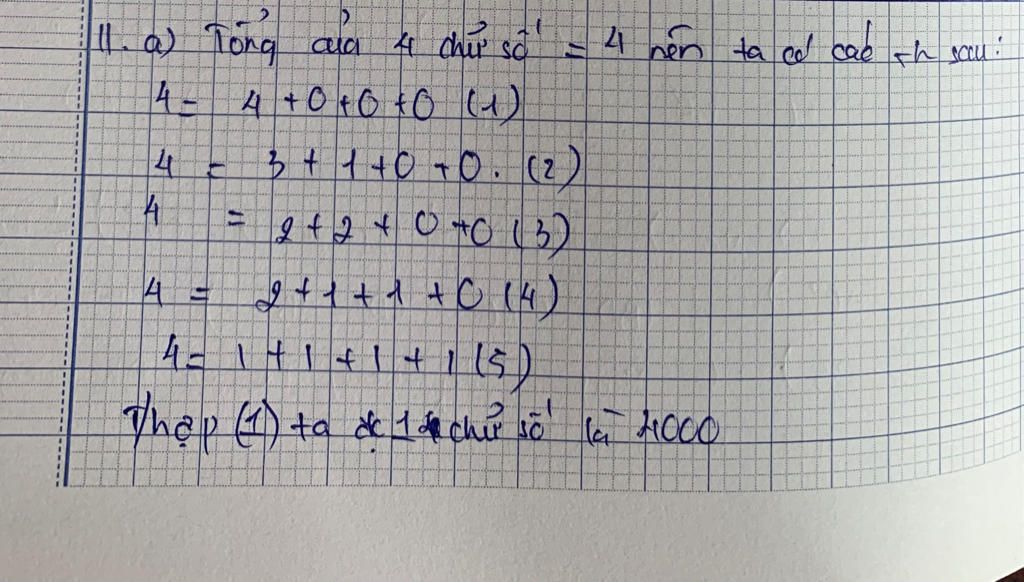 11. a) Tổng của 4 chữ số = 4 nên ta có các th sau:
4 = 4 + 0 + 0 + 0 (1)
4 = 3 + 1 + 0 + 0. (2)
4 = 2 + 2 + 0 + 0 (3)
4 = 2 + 1 + 1 + 0 (4)
4 = 1 + 1 + 1 + 1 (5)
T/hợp (1) ta đc 1 chữ số là 4000